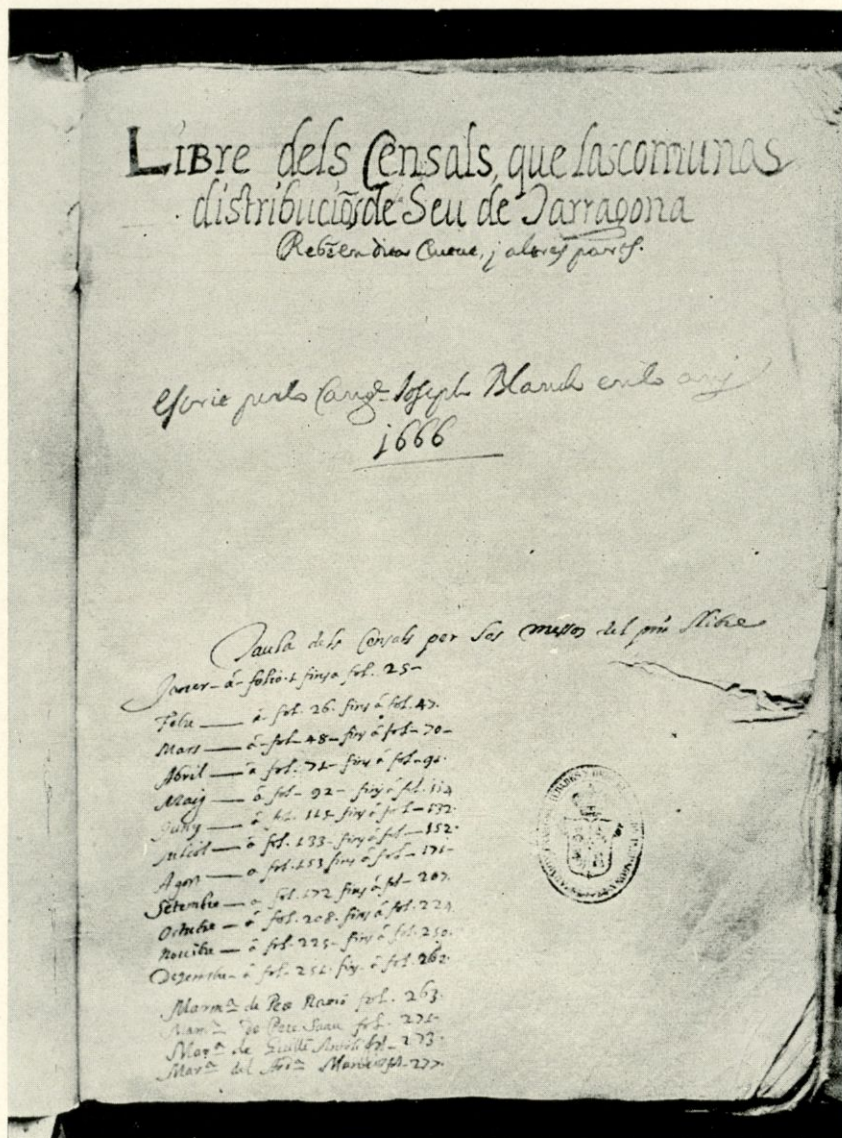 LIBre dels Censals, que las comunas
distribuciõs de Seu de Tarragona
Rebẽ en dita Ciutat, j altres parts.
escrit per lo Cange Joseph Blanch en lo any
1666
Taula dels Censals per los mesos del pnt llibre
Janer - á folio 1 fins a fol. 25-
Febr — á fol. 26. fins á fol. 47.
Mars — á fol- 48- fins á fol- 70-
Abril — á fol. 71- fins á fol- 91.
Maig — á fol- 92- fins á fol. 114
Juny — á fol. 115- fins á fol- 132.
Juliol — á fol. 133- fins á fol- 152.
Agost — á fol. 153 fins á fol- 171-
Setembre - á fol. 172 fins á fol- 207.
Octubre - á fol. 208. fins á fol. 224
Novẽbre - á fol. 225- fins á fol. 250.
Dezembre - á fol. 251- fins á fol. 262.
de Pere fol. 263.
de Pere fol. 271-
de Guillẽ fol- 273.
del fol- 277.